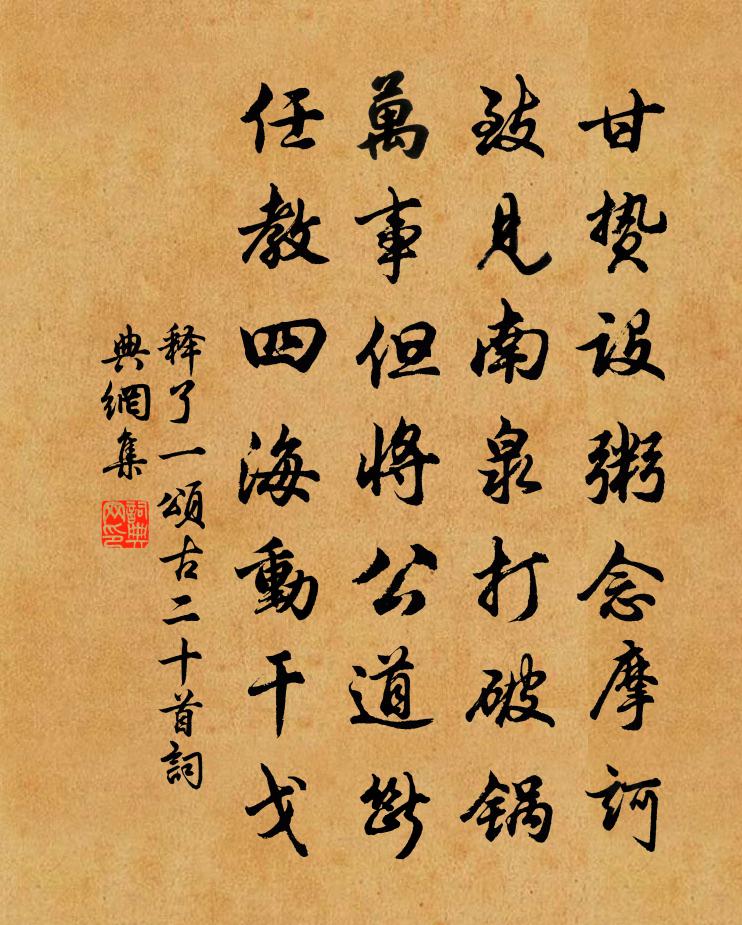 甘贽设粥念摩訶
致見南泉打破锅
萬事但将公道斷
任教四海動干戈
释了一頌古二十首詞
典網集
詞典網印